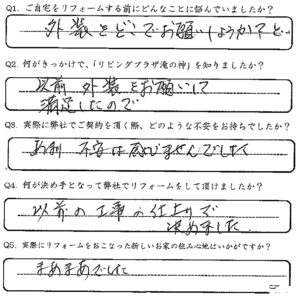 Q1. ご自宅をリフォームする前にどんなことに悩んでいましたか?
外装をどこでお願いしようかと
Q2. 何がきっかけで、「リビングプラザ滝の神」を知りましたか?
以前 外装をお願いして
満足したので
Q3. 実際に弊社でご契約を頂く際、どのような不安をお持ちでしたか?
あまり 不安は感じませんでした
Q4. 何が決め手となって弊社でリフォームをして頂けましたか?
以前の工事の仕上りで
決めました。
Q5. 実際にリフォームをおこなった新しいお家の住み心地はいかがですか?
まあまあでした